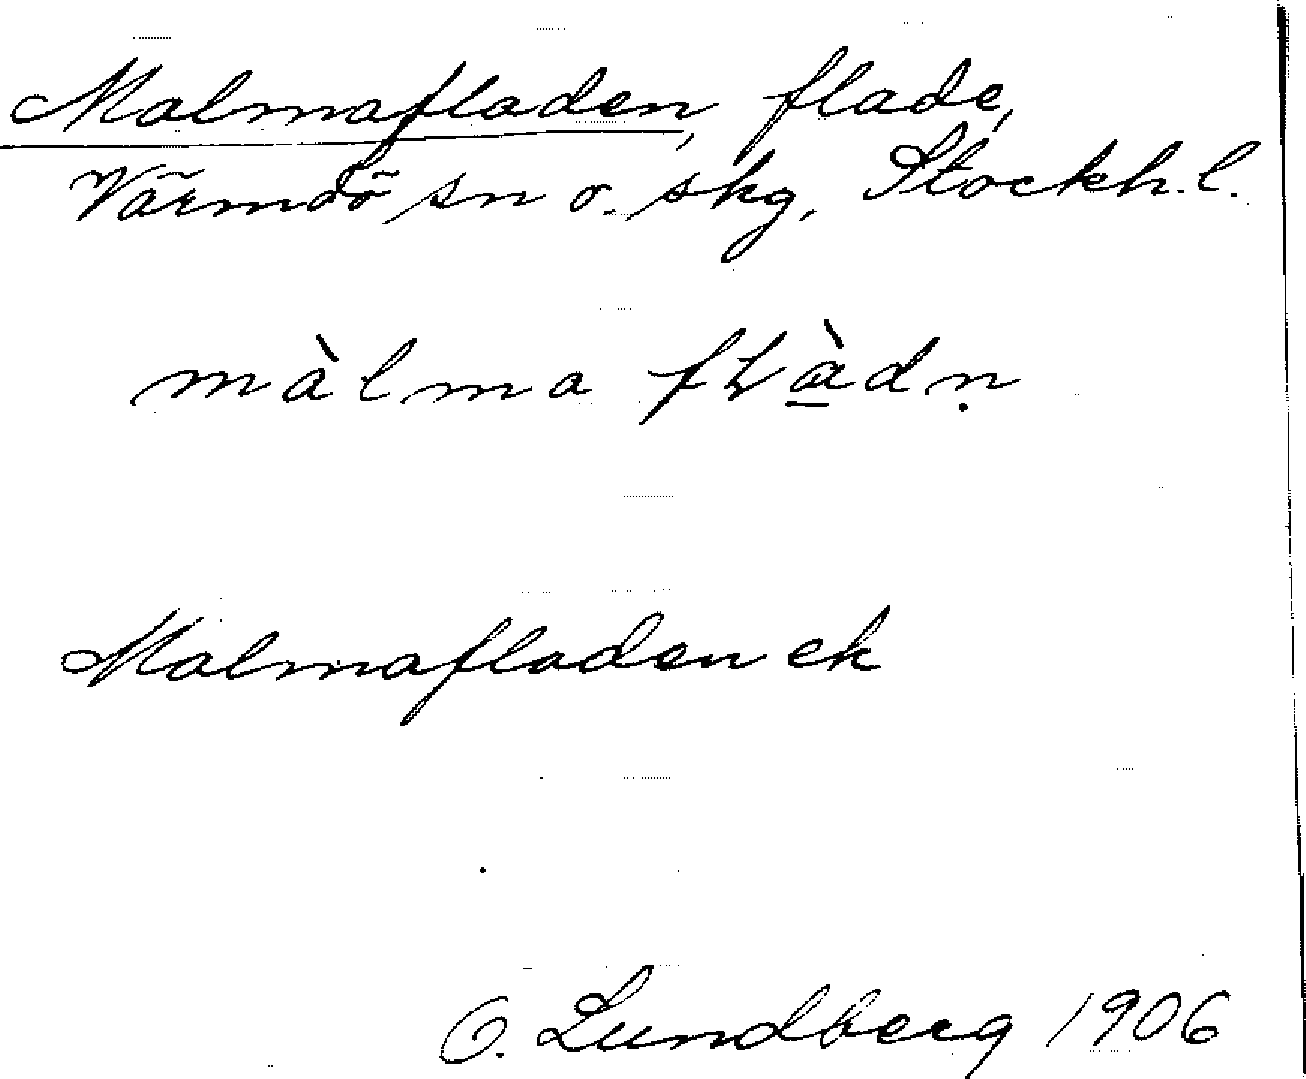 Malmafladen, flade,
Värmdö sn o. skg, Stockh. l.
màlma fꞭà̲dṇ
Malmafladen ek
O. Lundberg 1906